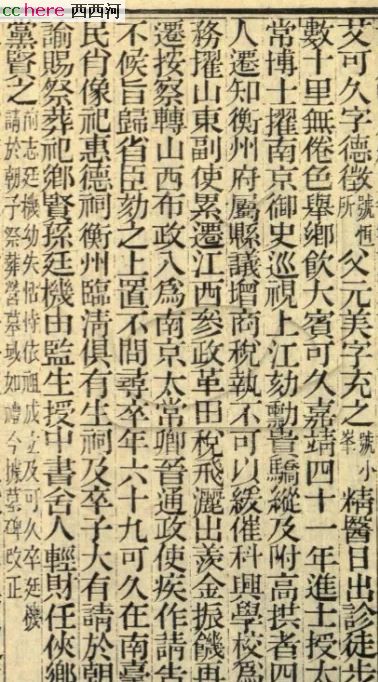 cchere 西西河
艾可久字德徵號恒所父元美字充之號小峯精醫日出診徒步
數十里無倦色舉鄉飲大賓可久嘉靖四十一年進士授太
常博士擢南京御史巡視上江劾勳貴驕縱及附高拱者四
人遷知衡州府屬縣議增商稅執不可以緩催科興學校爲
務擢山東副使累遷江西參政革田稅飛灑出羨金振饑再
遷按察轉山西布政入爲南京太常卿晉通政使疾作請告
不候旨歸省臣劾之上置不問尋卒年六十九可久在南臺
民肖像祀惠德祠衡州臨淸俱有生祠及卒子大有請於朝
諭賜祭葬祀鄉賢孫廷機由監生授中書舍人輕財任俠鄉
黨賢之前志廷機幼失怙恃依祖成立及可久卒廷機請於朝予祭葬營墓域如禮今據墓碑改正